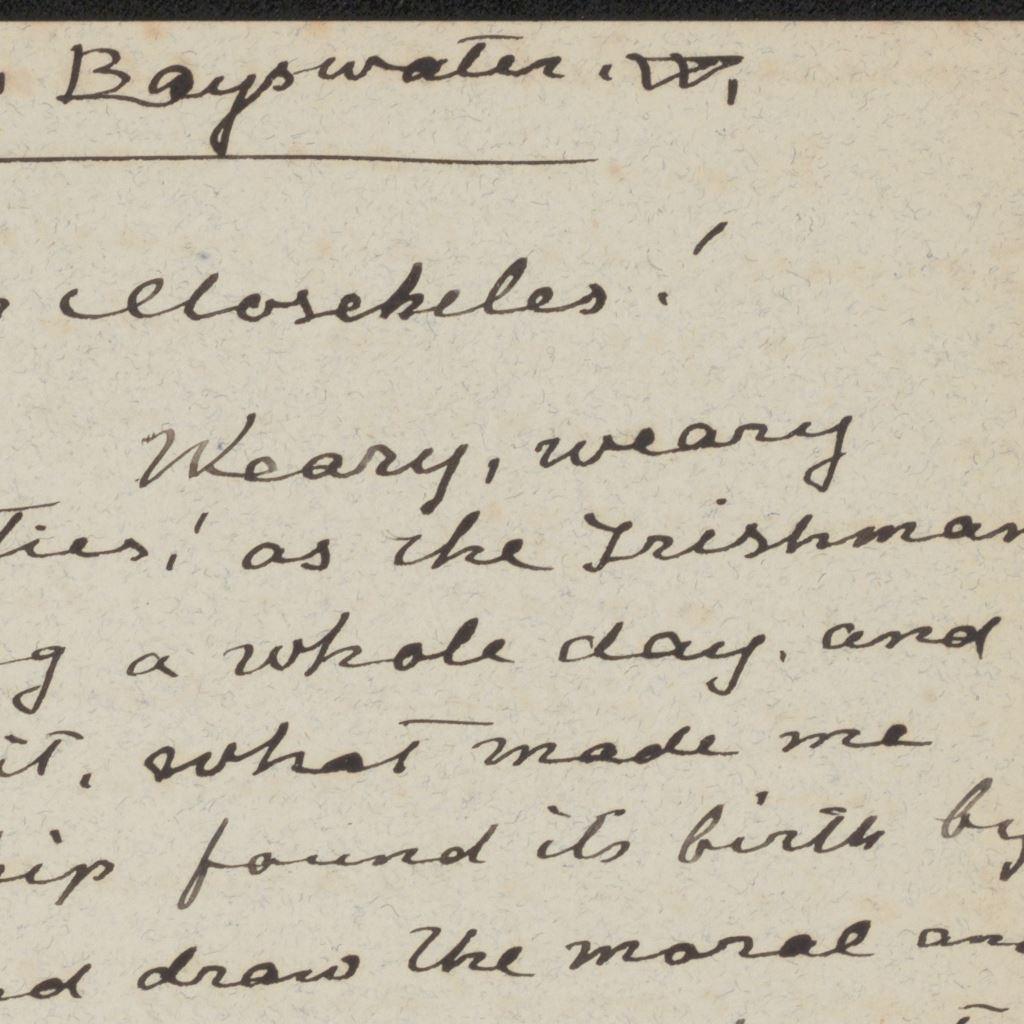 Bayswater. W,
Moscheles!
Weary, weary
ties! as the Irishman
g a whole day, and
it, what made me
hip found its birth by
nd draw the moral and